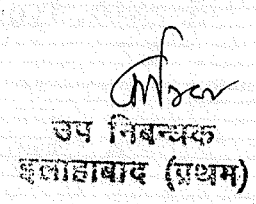 उप निबन्धक
इलाहाबाद (प्रथम)